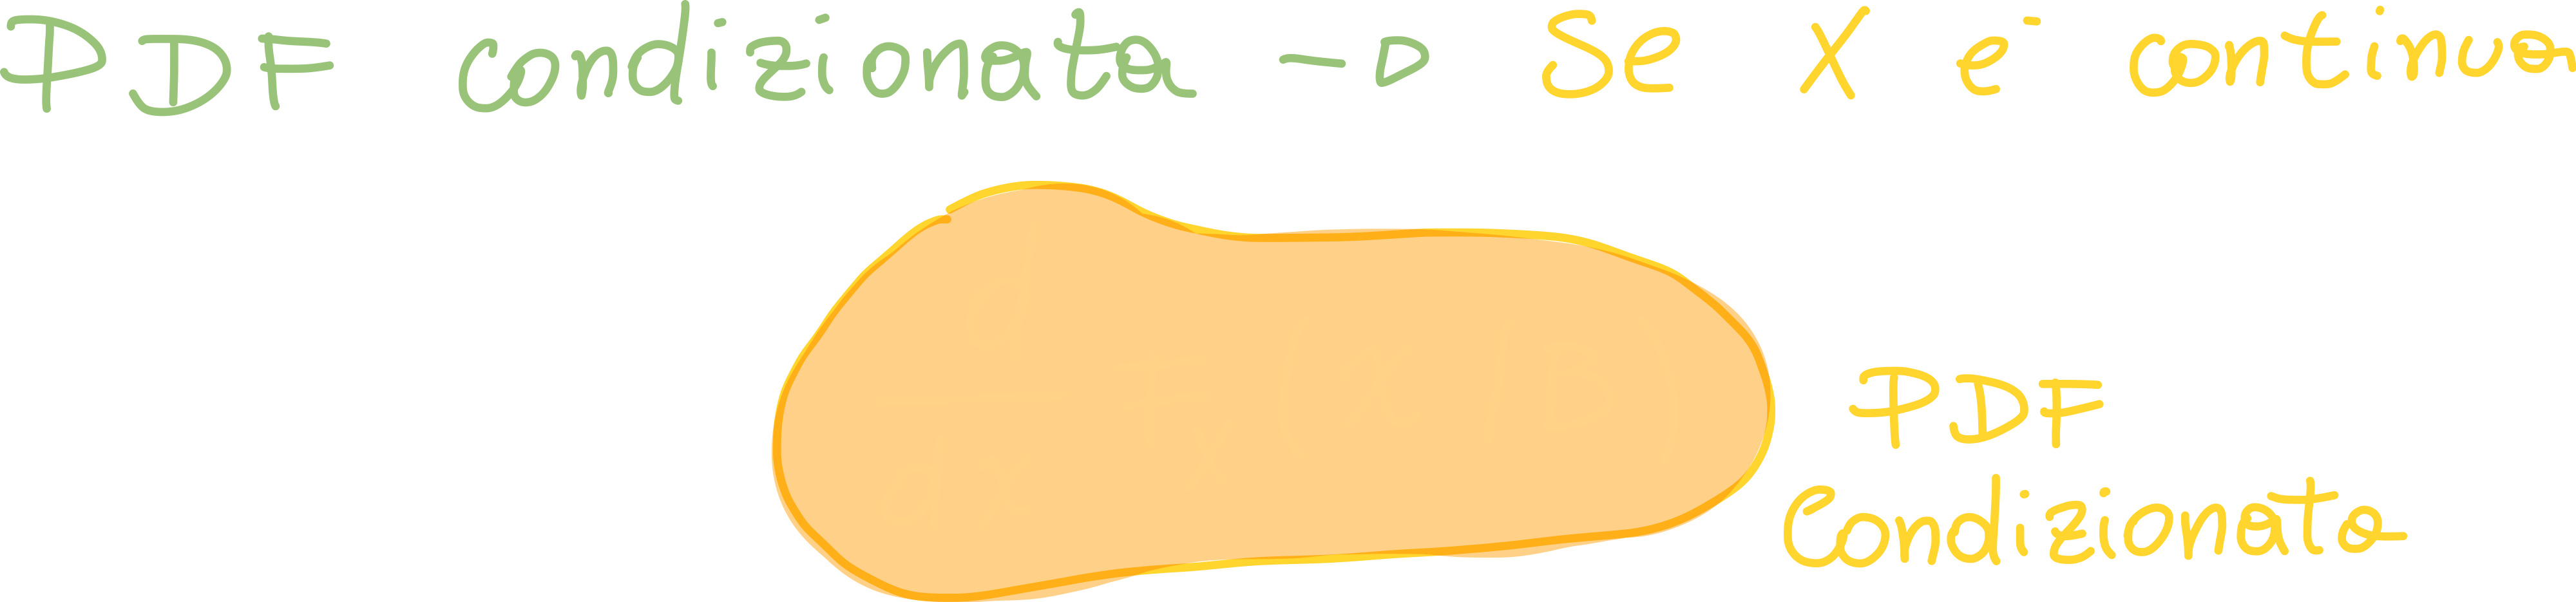 PDF condizionata -> Se X è continua
PDF
Condizionata